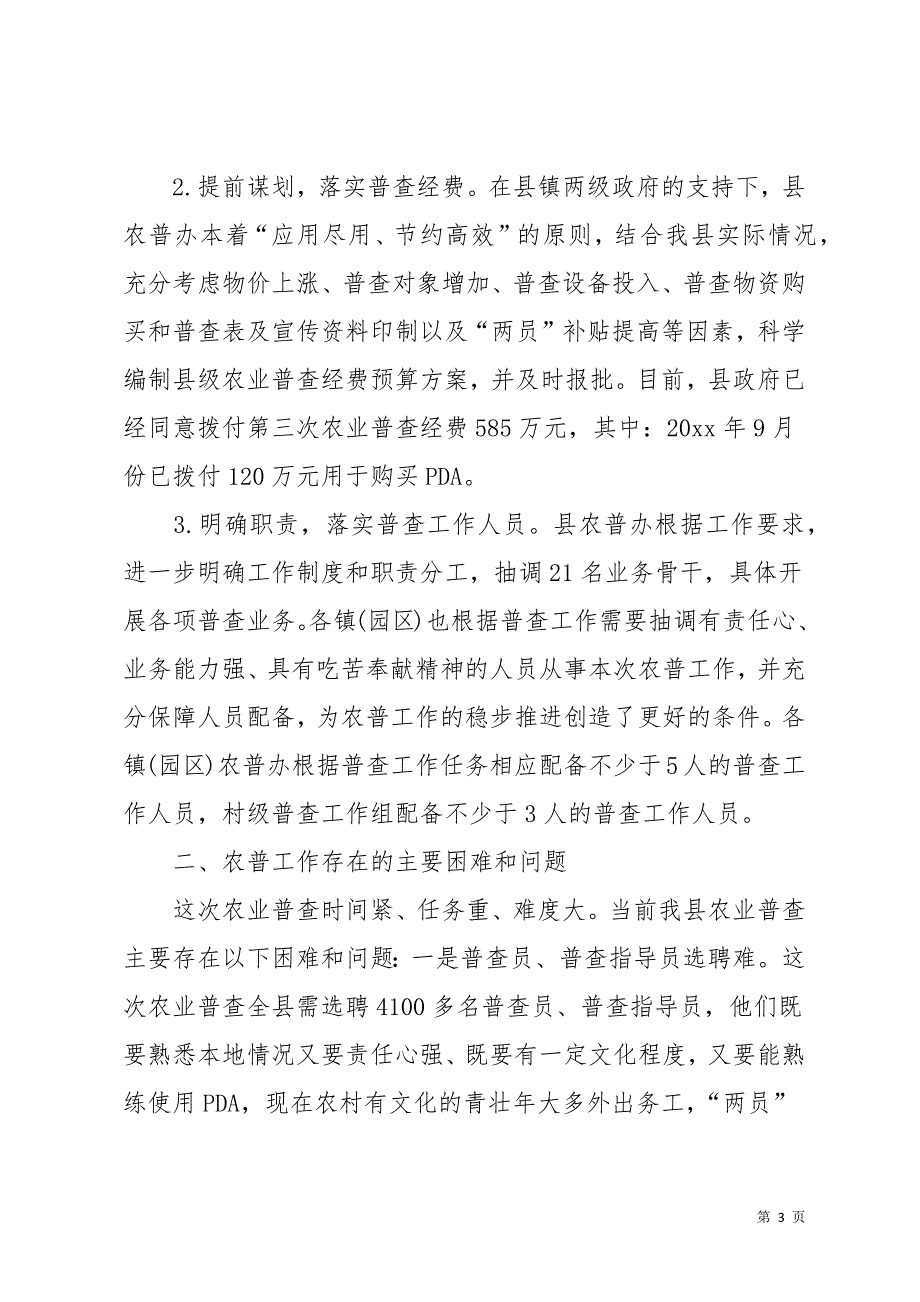 2.提前谋划，落实普查经费。在县镇两级政府的支持下，县
农普办本着“应用尽用、节约高效”的原则，结合我县实际情况，
充分考虑物价上涨、普查对象增加、普查设备投入、普查物资购
买和普查表及宣传资料印制以及“两员”补贴提高等因素，科学
编制县级农业普查经费预算方案，并及时报批。目前，县政府已
经同意拨付第三次农业普查经费 585 万元，其中：20xx 年 9 月
份已拨付 120 万元用于购买 PDA。
3.明确职责，落实普查工作人员。县农普办根据工作要求，
进一步明确工作制度和职责分工，抽调 21 名业务骨干，具体开
展各项普查业务。各镇(园区)也根据普查工作需要抽调有责任心、
业务能力强、具有吃苦奉献精神的人员从事本次农普工作，并充
分保障人员配备，为农普工作的稳步推进创造了更好的条件。各
镇(园区)农普办根据普查工作任务相应配备不少于 5 人的普查工
作人员，村级普查工作组配备不少于 3 人的普查工作人员。
二、农普工作存在的主要困难和问题
这次农业普查时间紧、任务重、难度大。当前我县农业普查
主要存在以下困难和问题：一是普查员、普查指导员选聘难。这
次农业普查全县需选聘 4100 多名普查员、普查指导员，他们既
要熟悉本地情况又要责任心强、既要有一定文化程度，又要能熟
练使用 PDA，现在农村有文化的青壮年大多外出务工，“两员”
第 3 页